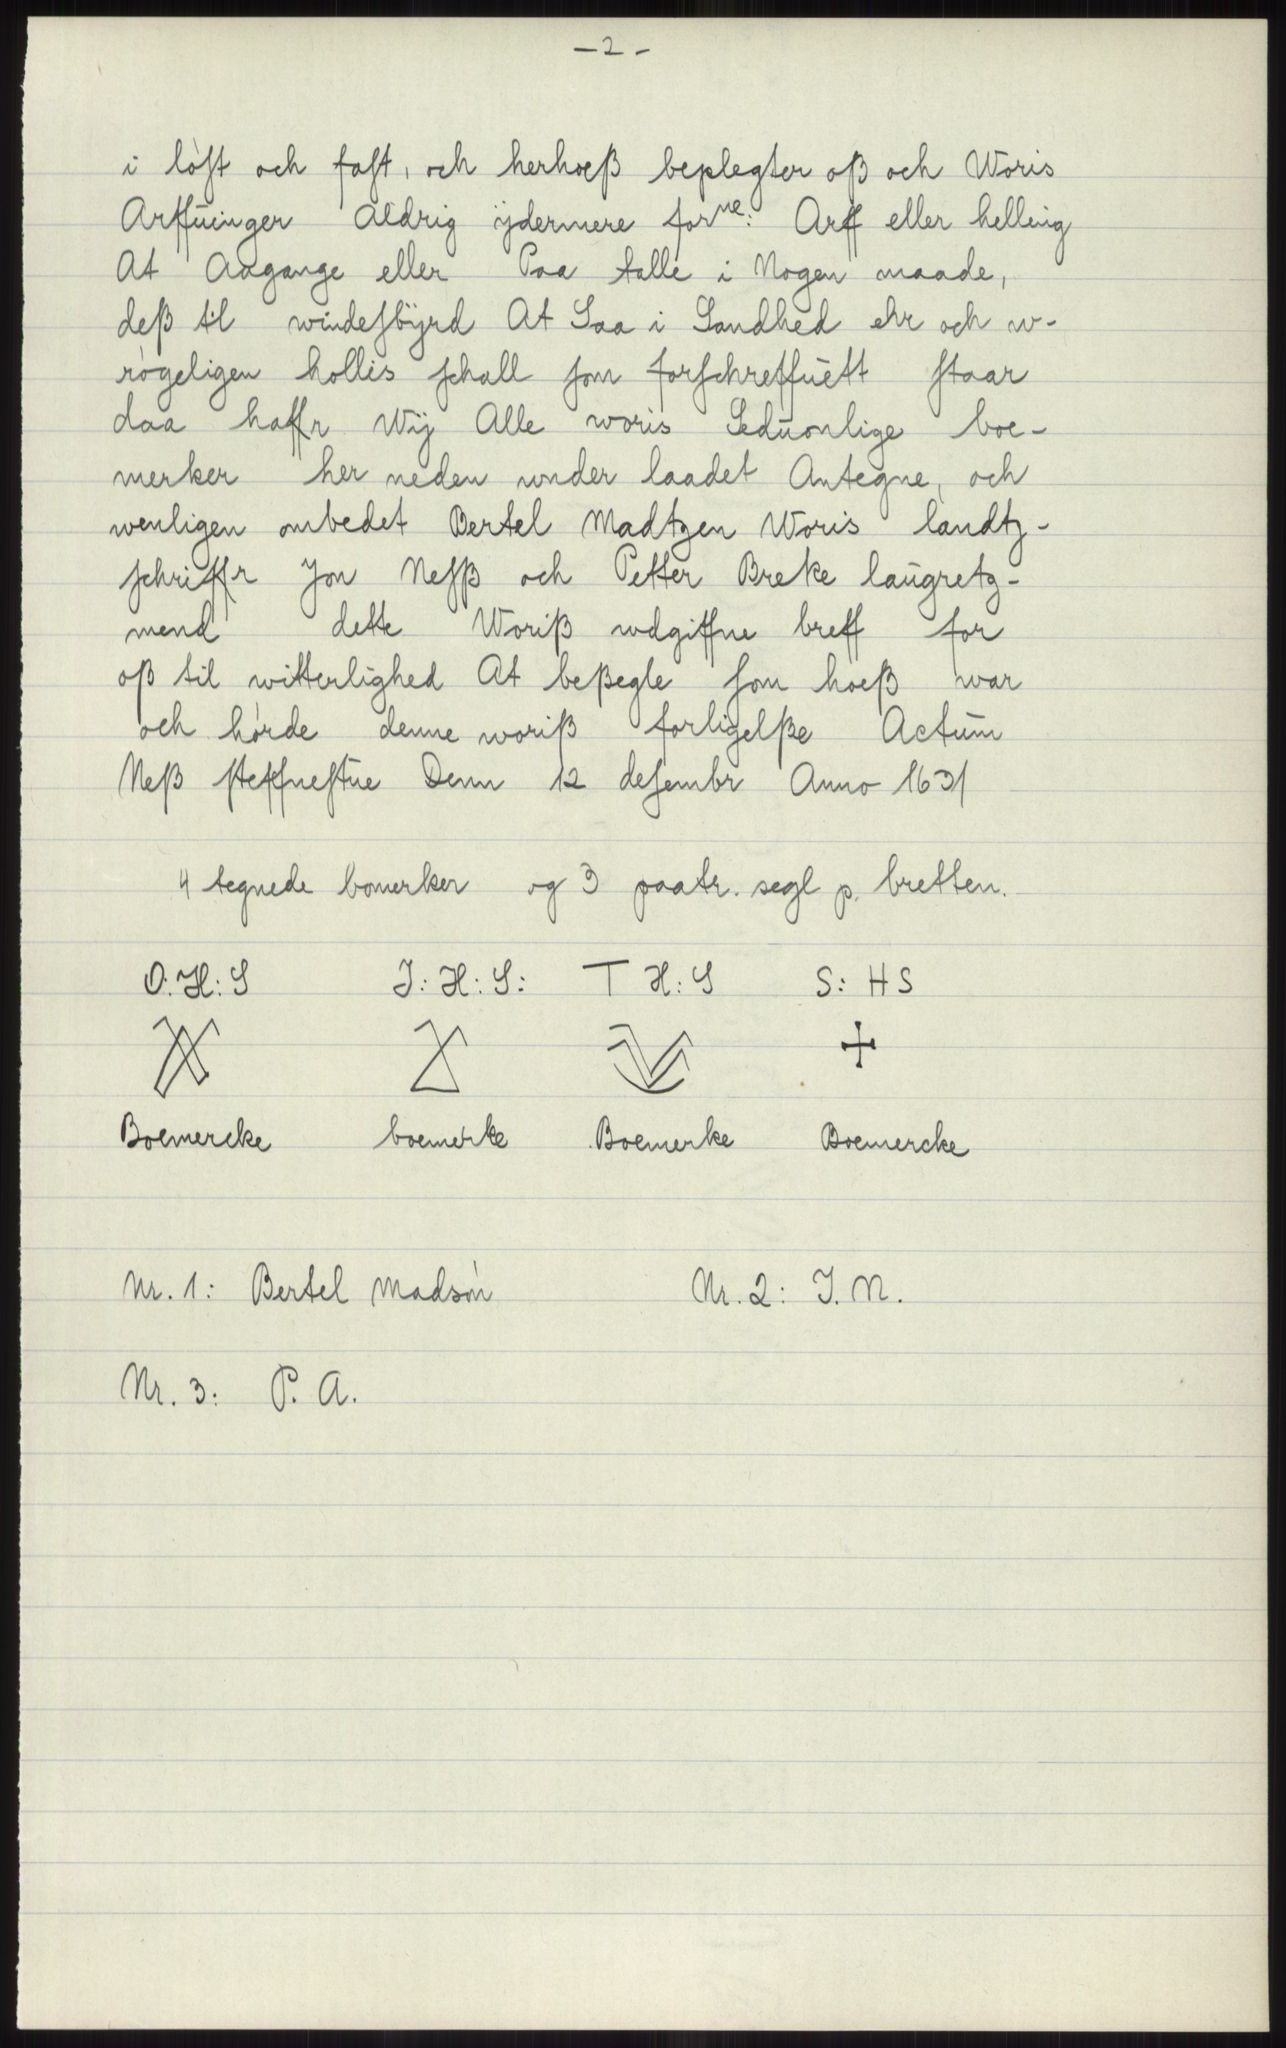 - 2 -
i løst och fast, och herhoeß beplegter oß och Woris
Arffuinger Aldrig ÿdermere forne: Arff eller helling
At Aagange eller Paa talle i Nogen maade,
deß til windesbÿrd At Saa i Sandhed ehr och w-
røgeligen hollis schall som forschreffuett staar
daa haffr Wij Alle woris Seduonlige boe-
merker her neden wnder laadet Antegne, och
wenligen ombedet Bertel Madtzen Woris landtz-
schriffr Jon Nesß och Petter Breke laugretz-
mend dette Woriß wdgiffne breff for
oß til witterlighed At beßegle som hoeß war
och hørde denne woriß forligelße Actum
Neß steffnestue Denn 12 desembr Anno 1631
4 tegnede bomerker og 3 paatr. segl p. bretten.
O: H: S J: H: S: T H: S S: H S
Boemercke boemerke Boemerke Boemercke
Nr. 1: Bertel Madsøn Nr. 2: J. N.
Nr. 3: P. A.